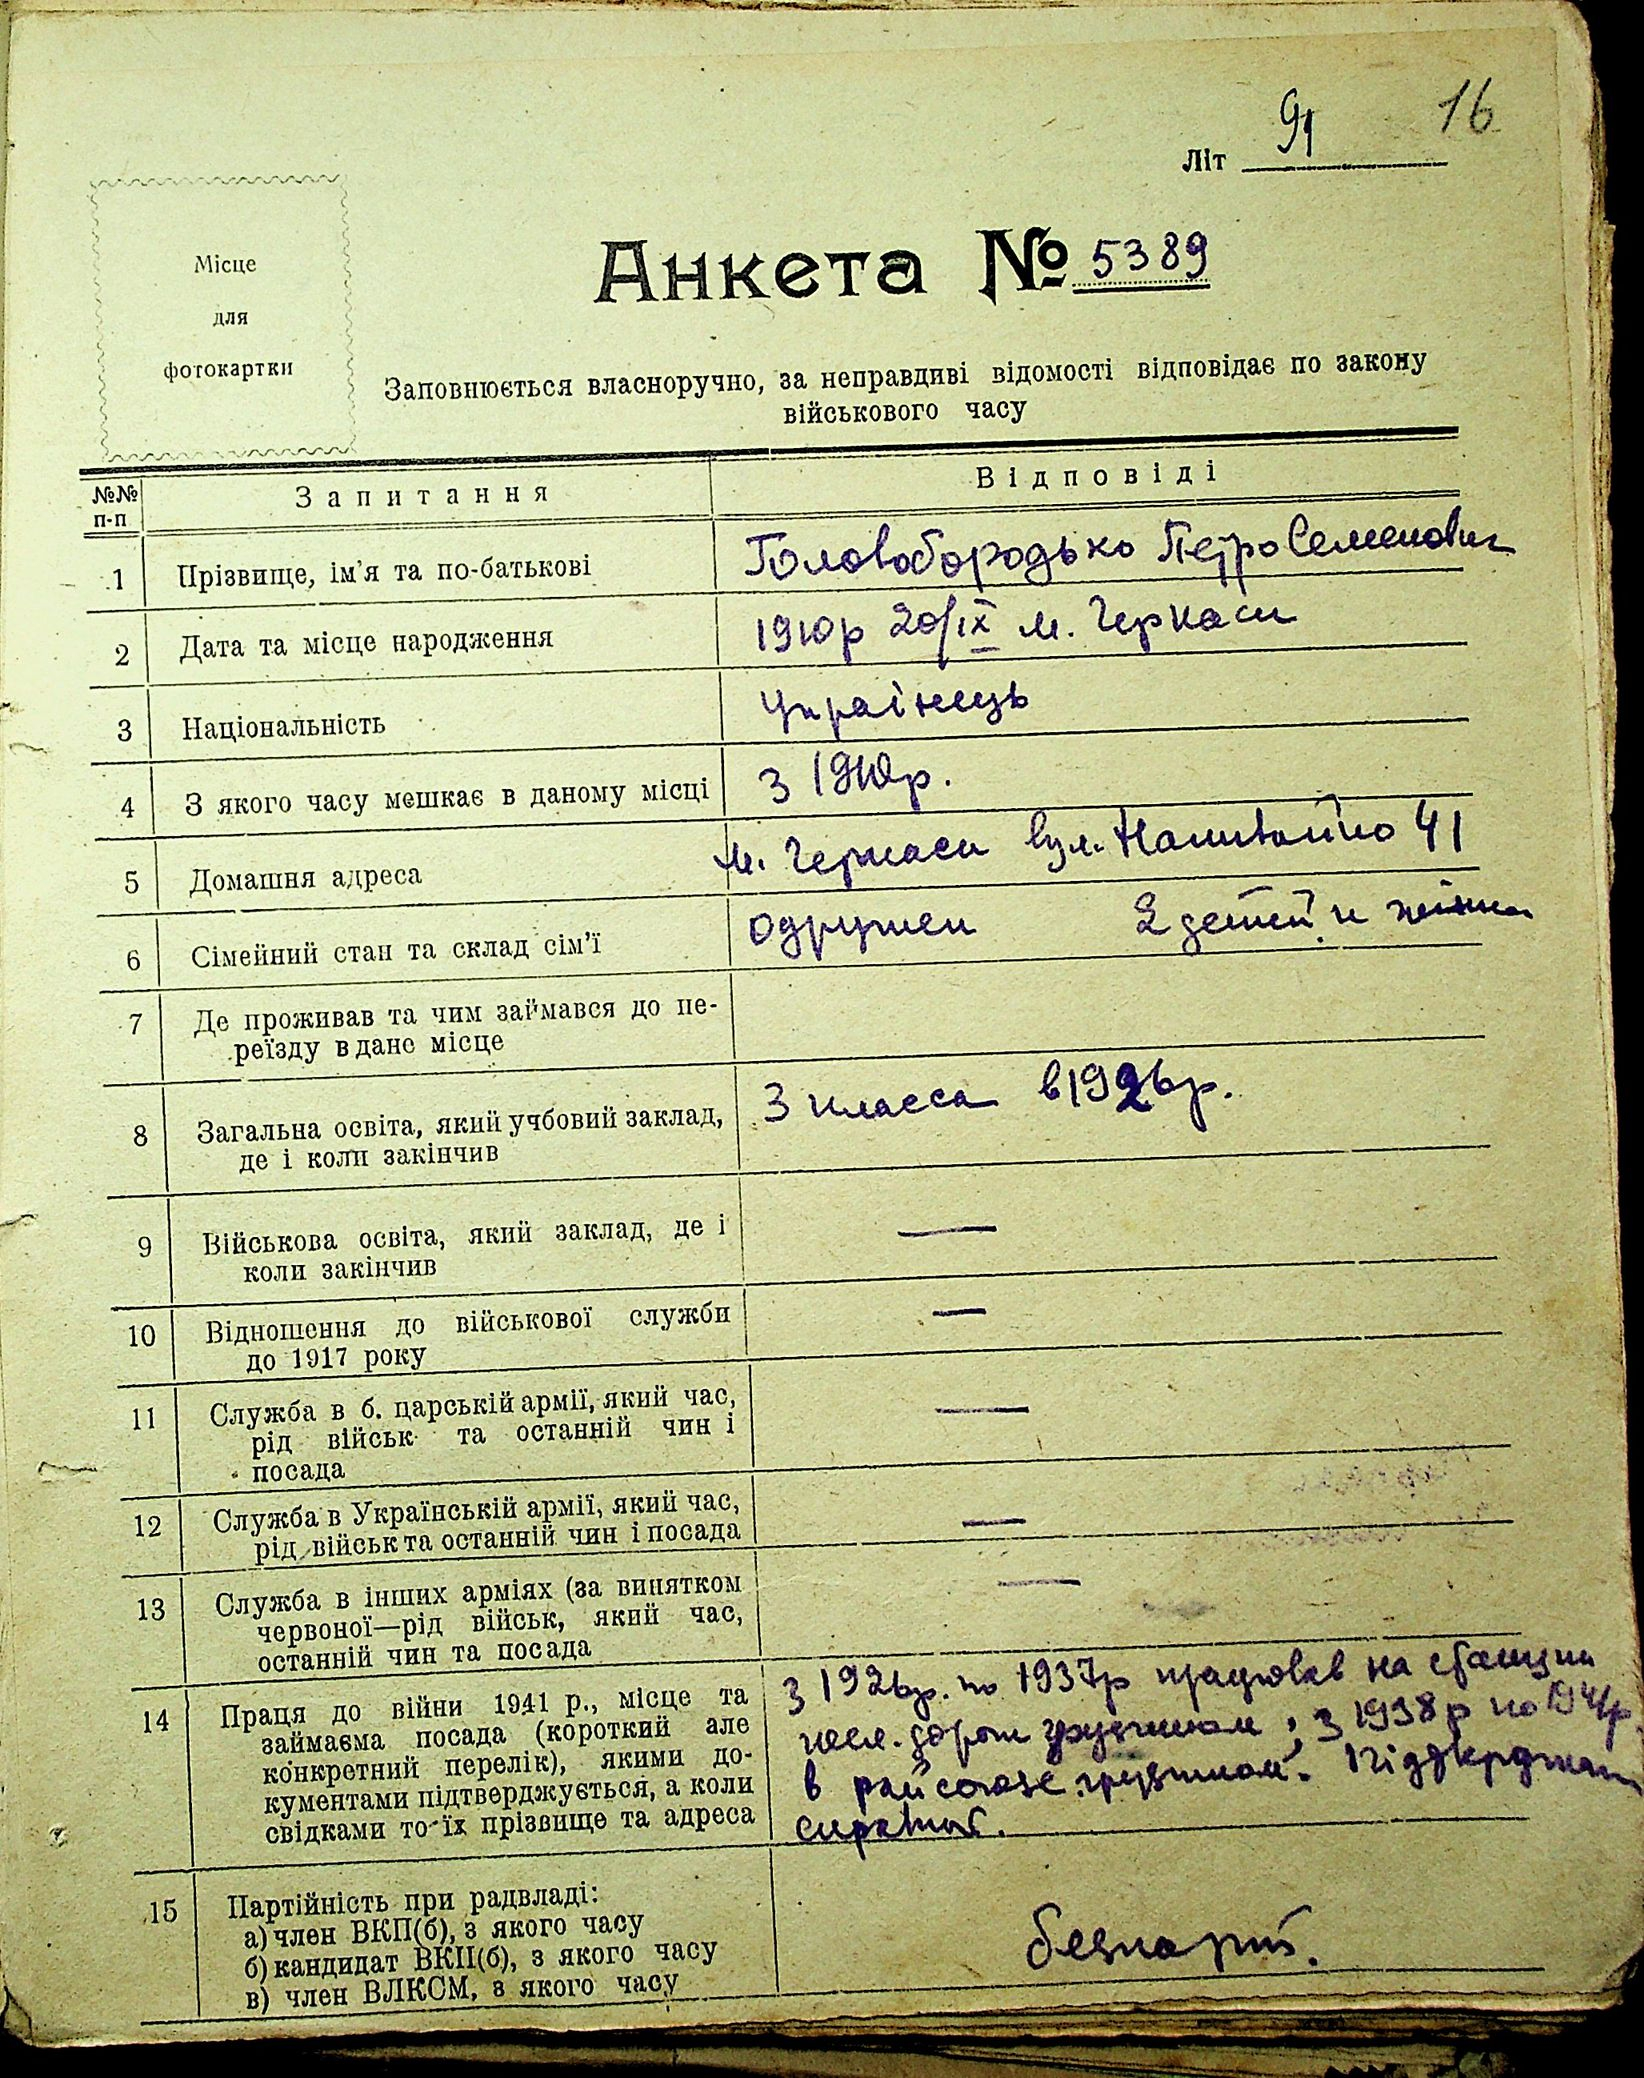 16
Літ 91
Місце
для
фотокартки
Анкета № 5389
Заповнюється власноручно, за неправдиві відомості відповідає по закону
військового часу
№№ п-п Запитання Відповіді
1 Прізвище, ім'я та по-батькові Головобородько Петро Семенович
2 Дата та місце народження 1910р 20/IX м. Черкаси
3 Національність Українець
4 З якого часу мешкає в даному місці З 1910р.
5 Домашня адреса м. Черкаси вул. Наливайко 41
6 Сімейний стан та склад сім'ї одружен 2 детей и жінка
7 Де проживав та чим займався до пе-
реїзду в дане місце
8 Загальна освіта, який учбовий заклад, 3 класса в 1926р.
де і коли закінчив
9 Військова освіта, який заклад, де і —
коли закінчив
10 Відношення до військової служби —
до 1917 року
11 Служба в б. царській армії, який час, —
рід військ та останній чин і
посада
12 Служба в Українській армії, який час, —
рід військ та останній чин і посада
13 Служба в інших арміях (за винятком —
червоної—рід військ, який час,
останній чин та посада
14 Праця до війни 1941 р., місце та З 1926р. по 1937р працював на станции
займаєма посада (короткий але жел. дорож грузчиком, з 1938р по 1941р.
конкретний перелік), якими до- в райсоюзе грузчиком.
кументами підтверджується, а коли
свідками то їх прізвище та адреса
15 Партійність при радвладі:
а) член ВКП(б), з якого часу
б) кандидат ВКП(б), з якого часу безпарт.
в) член ВЛКСМ, з якого часу